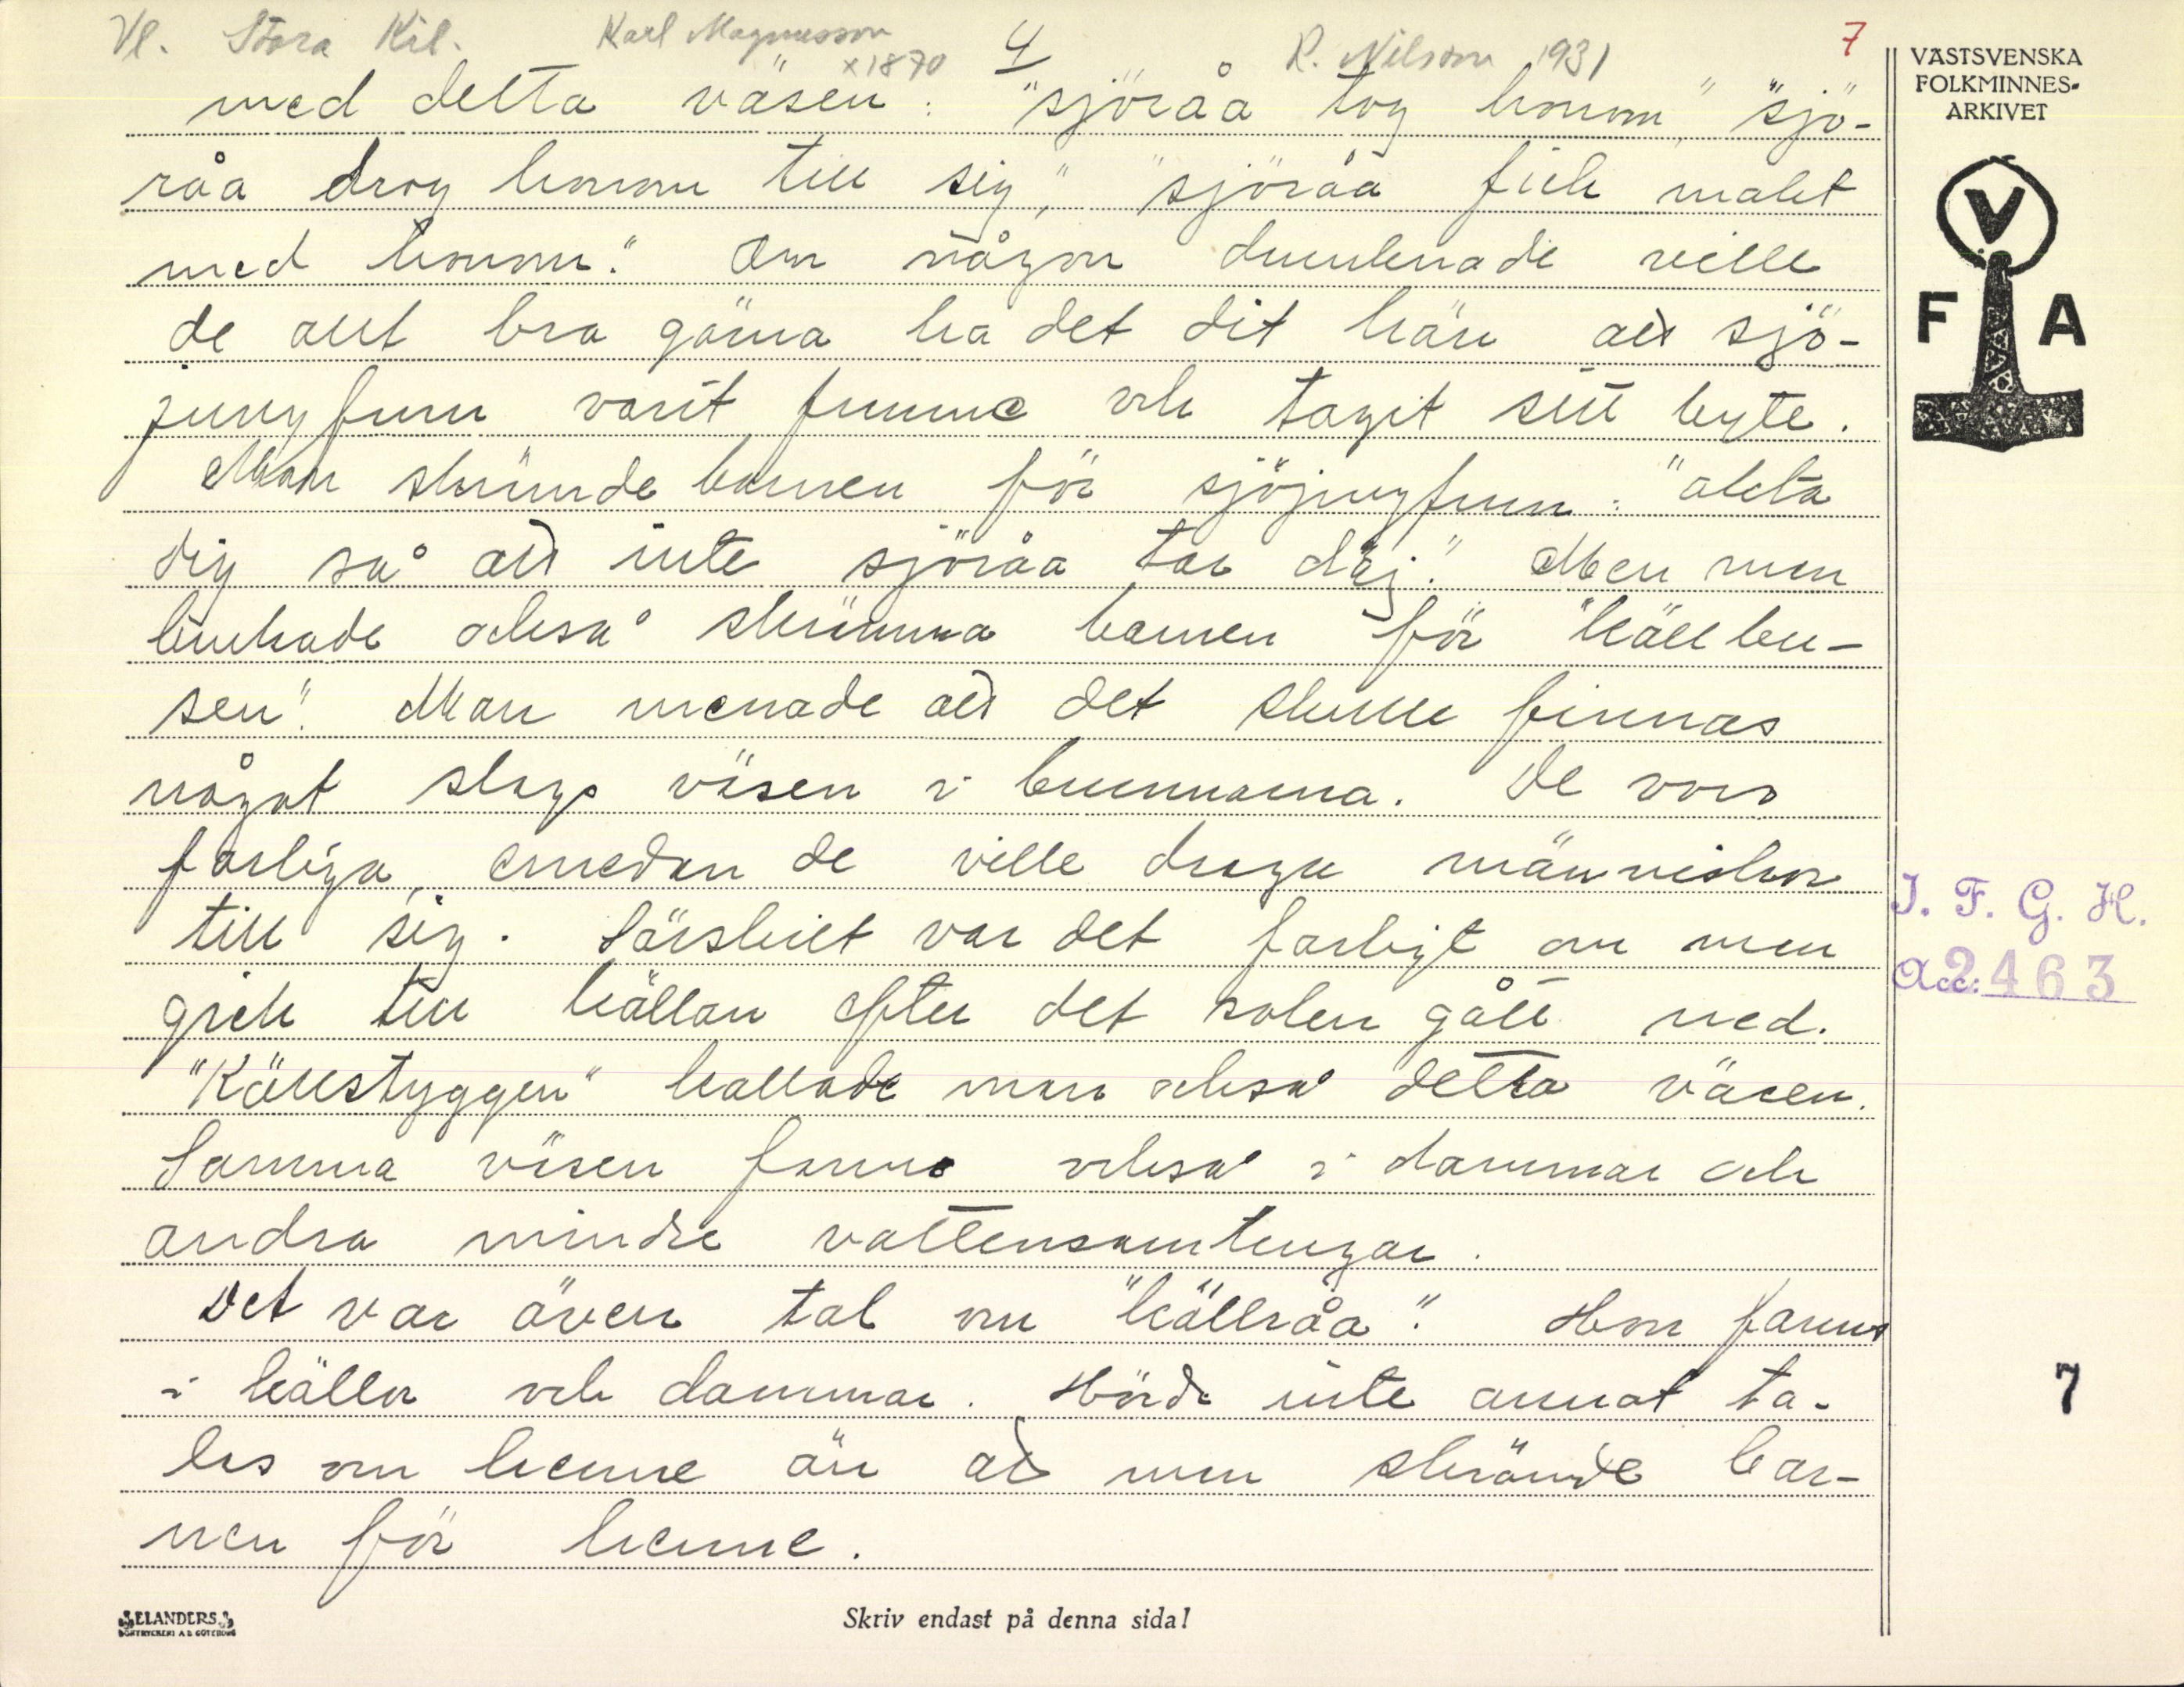 Vl. Stora Kil. Karl Magnusson 4 R. Nilson 1931 7
x1870
VÄSTSVENSKA
FOLKMINNES-
ARKIVET
V
F A
med detta väsen: "sjöråa tog honom," "sjö-
råa drog honom till sig," "sjöråa fick makt
med honom." Om någon drunknade ville
de allt bra gärna ha det dit hän att sjö-
jungfrun varit framme och tagit sitt byte.
Man skrämde barnen för sjöjungfrun: "akta
dig så att inte sjöråa tar däj." Men man
brukade också skrämma barnen för "källbu-
sen". Man menade att det skulle finnas
något slags väsen i brunnarna. De voro
farliga, emedan de ville draga människor
till sig. Särskilt var det farligt om man
gick till källan efter det solen gått ned.
"Källstyggen" kallade man också detta väsen.
Samma väsen fanns också i dammar och
andra mindre vattensamlingar.
Det var även tal om "källråa". Hon fanns
i källor och dammar. Hörde inte annat ta-
las om henne än att man skrämde bar-
nen för henne.
I. F. G. H.
Acc: 2463
7
ELANDERS
BOKTRYCKERI A.B. GÖTEBORG
Skriv endast på denna sida!